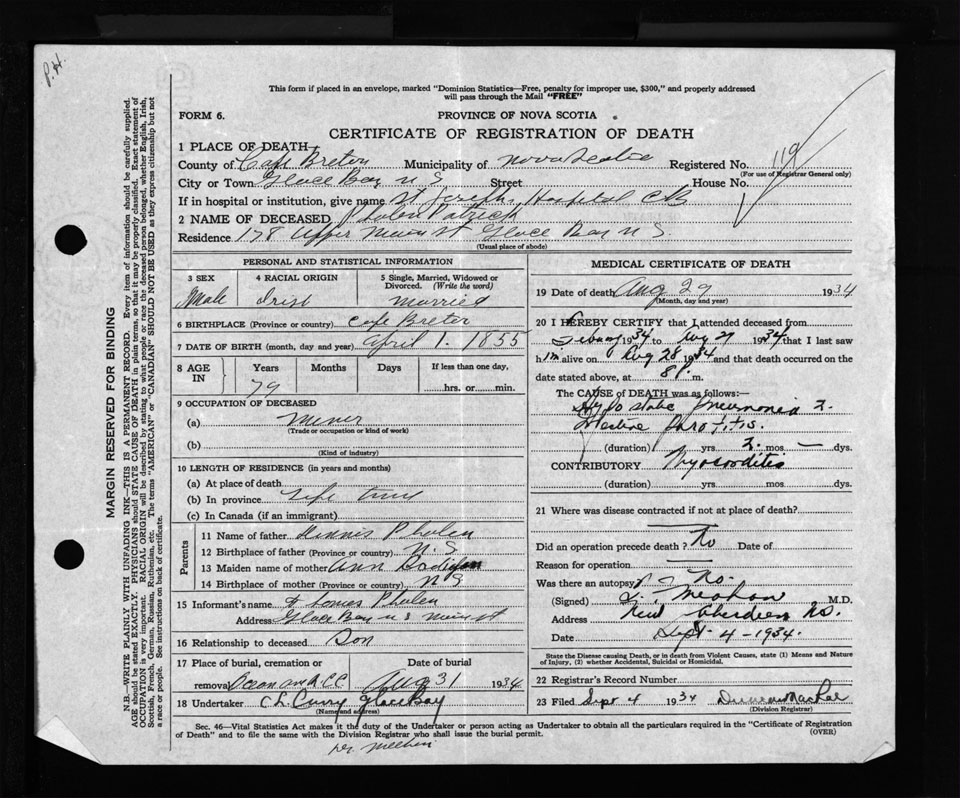 P.H.
This form if placed in an envelope, marked "Dominion Statistics—Free, penalty for improper use, $300," and properly addressed
will pass through the Mail "FREE"
FORM 6.
PROVINCE OF NOVA SCOTIA
CERTIFICATE OF REGISTRATION OF DEATH
1 PLACE OF DEATH—
County of Cape Breton Municipality of Nova Scotia Registered No. 119
(For use of Registrar General only)
City or Town Glace Bay N S Street House No.
If in hospital or institution, give name St Josephs Hospital C B
2 NAME OF DECEASED Phalen Patrick
Residence 178 Upper Main St Glace Bay N S.
(Usual place of abode)
PERSONAL AND STATISTICAL INFORMATION
3 SEX
Male
4 RACIAL ORIGIN
Irish
5 Single, Married, Widowed or
Divorced. (Write the word)
Married
6 BIRTHPLACE (Province or country) Cape Breton
7 DATE OF BIRTH (month, day and year) April 1. 1855
8 AGE IN
Years Months Days If less than one day,
79
hrs. or min.
9 OCCUPATION OF DECEASED
(a) Miner
(Trade or occupation or kind of work)
(b)
(Kind of industry)
10 LENGTH OF RESIDENCE (in years and months)
(a) At place of death
(b) In province Life time
(c) In Canada (if an immigrant)
Parents
11 Name of father Dennis Phalen
12 Birthplace of father (Province or country) N. S
13 Maiden name of mother Ann
14 Birthplace of mother (Province or country) N S
15 Informant's name Phalen
Address Glace Bay N S Main st
16 Relationship to deceased Son
17 Place of burial, cremation or
removal C C
Date of burial
Aug 31 1934
18 Undertaker C L Curry Glace Bay
(Name and address)
MEDICAL CERTIFICATE OF DEATH
19 Date of death Aug 29 1934
(Month, day and year)
20 I HEREBY CERTIFY that I attended deceased from
1934 to Aug 29 1934 that I last saw
him alive on Aug 28 1934 and that death occurred on the
date stated above, at 8 P. m.
The CAUSE of DEATH was as follows:—
Hypostatic Pneumonia 2.
Parotitis.
(duration) yrs 2. mos — dys.
CONTRIBUTORY Myocarditis
(duration) yrs mos dys.
21 Where was disease contracted if not at place of death?
Did an operation precede death? No Date of
Reason for operation
Was there an autopsy? No.
(Signed) Meehan M.D.
Address New Aberdeen N.S.
Date Sept. 4 - 1934.
State the Disease causing Death, or in death from Violent Causes, state (1) Means and Nature
of Injury, (2) whether Accidental, Suicidal or Homicidal.
22 Registrar's Record Number
23 Filed Sept 4 1934 Duncan MacRae
(Division Registrar)
Sec. 46—Vital Statistics Act makes it the duty of the Undertaker or person acting as Undertaker to obtain all the particulars required in the "Certificate of Registration
of Death" and to file the same with the Division Registrar who shall issue the burial permit. (OVER)
Dr. Meehan
MARGIN RESERVED FOR BINDING
N.B.—WRITE PLAINLY WITH UNFADING INK—THIS IS A PERMANENT RECORD. Every item of information should be carefully supplied.
AGE should be stated EXACTLY. PHYSICIANS should STATE CAUSE OF DEATH in plain terms, so that it may be properly classified. Exact statement of
OCCUPATION is very important. RACIAL ORIGIN will be described by stating to what people or race the deceased person belonged, whether English, Irish,
Scottish, French, German, Russian, Ruthenian, etc. The terms "AMERICAN" or "CANADIAN" SHOULD NOT BE USED as they express citizenship but not
a race or people. See instructions on back of certificate.